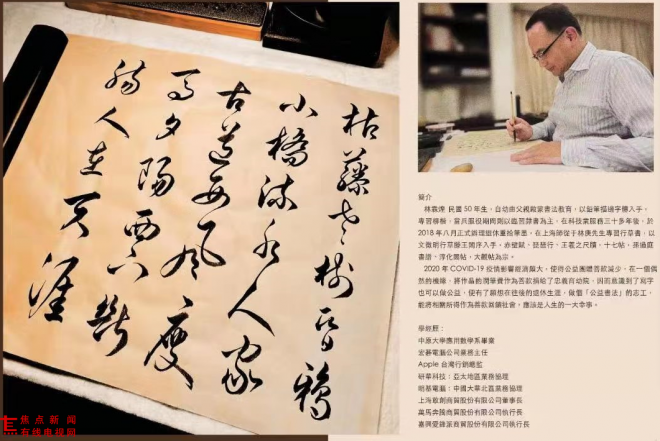 枯藤老樹昏鴉
小橋流水人家
古道西風瘦
馬夕陽西下斷
腸人在天涯
焦点新闻
有线电视网
簡介
民國 50 年生，自幼由父親啟蒙書法教育，以鉛筆描字帖入手。
專習柳楷，當兵服役期間則以臨習隸書為主。在科技業服務三十多年後，於
2018 年八月正式辦理退休重拾筆墨。在上海師從于林庚先生專習行草書，以
文徵明行草滕王閣序入手。赤壁賦，琵琶行，王羲之尺牘，十七帖，孫過庭
書譜，淳化閣帖，大觀帖為宗。
2020 年 COVID-19 疫情影響經濟頗大，使得公益團體善款減少，在一個偶
然的機緣，將作品的潤筆費作為善款捐給了忠義育幼院，因而意識到了寫字
也可以做公益，使有了願想在往後的退休生活，做個「公益書法」的志工，
能將相關所得作為善款回饋社會，應該是人生的一大幸事。
學經歷：
中原大學應用數學系畢業
宏碁電腦公司業務主任
Apple 台灣行銷總監
研華科技：亞太地區業務協理
明基電腦：中國大華北區業務協理
上海敢創商貿股份有限公司董事長
萬馬奔騰商貿股份有限公司執行長
嘉興愛鋒派商貿股份有限公司執行長